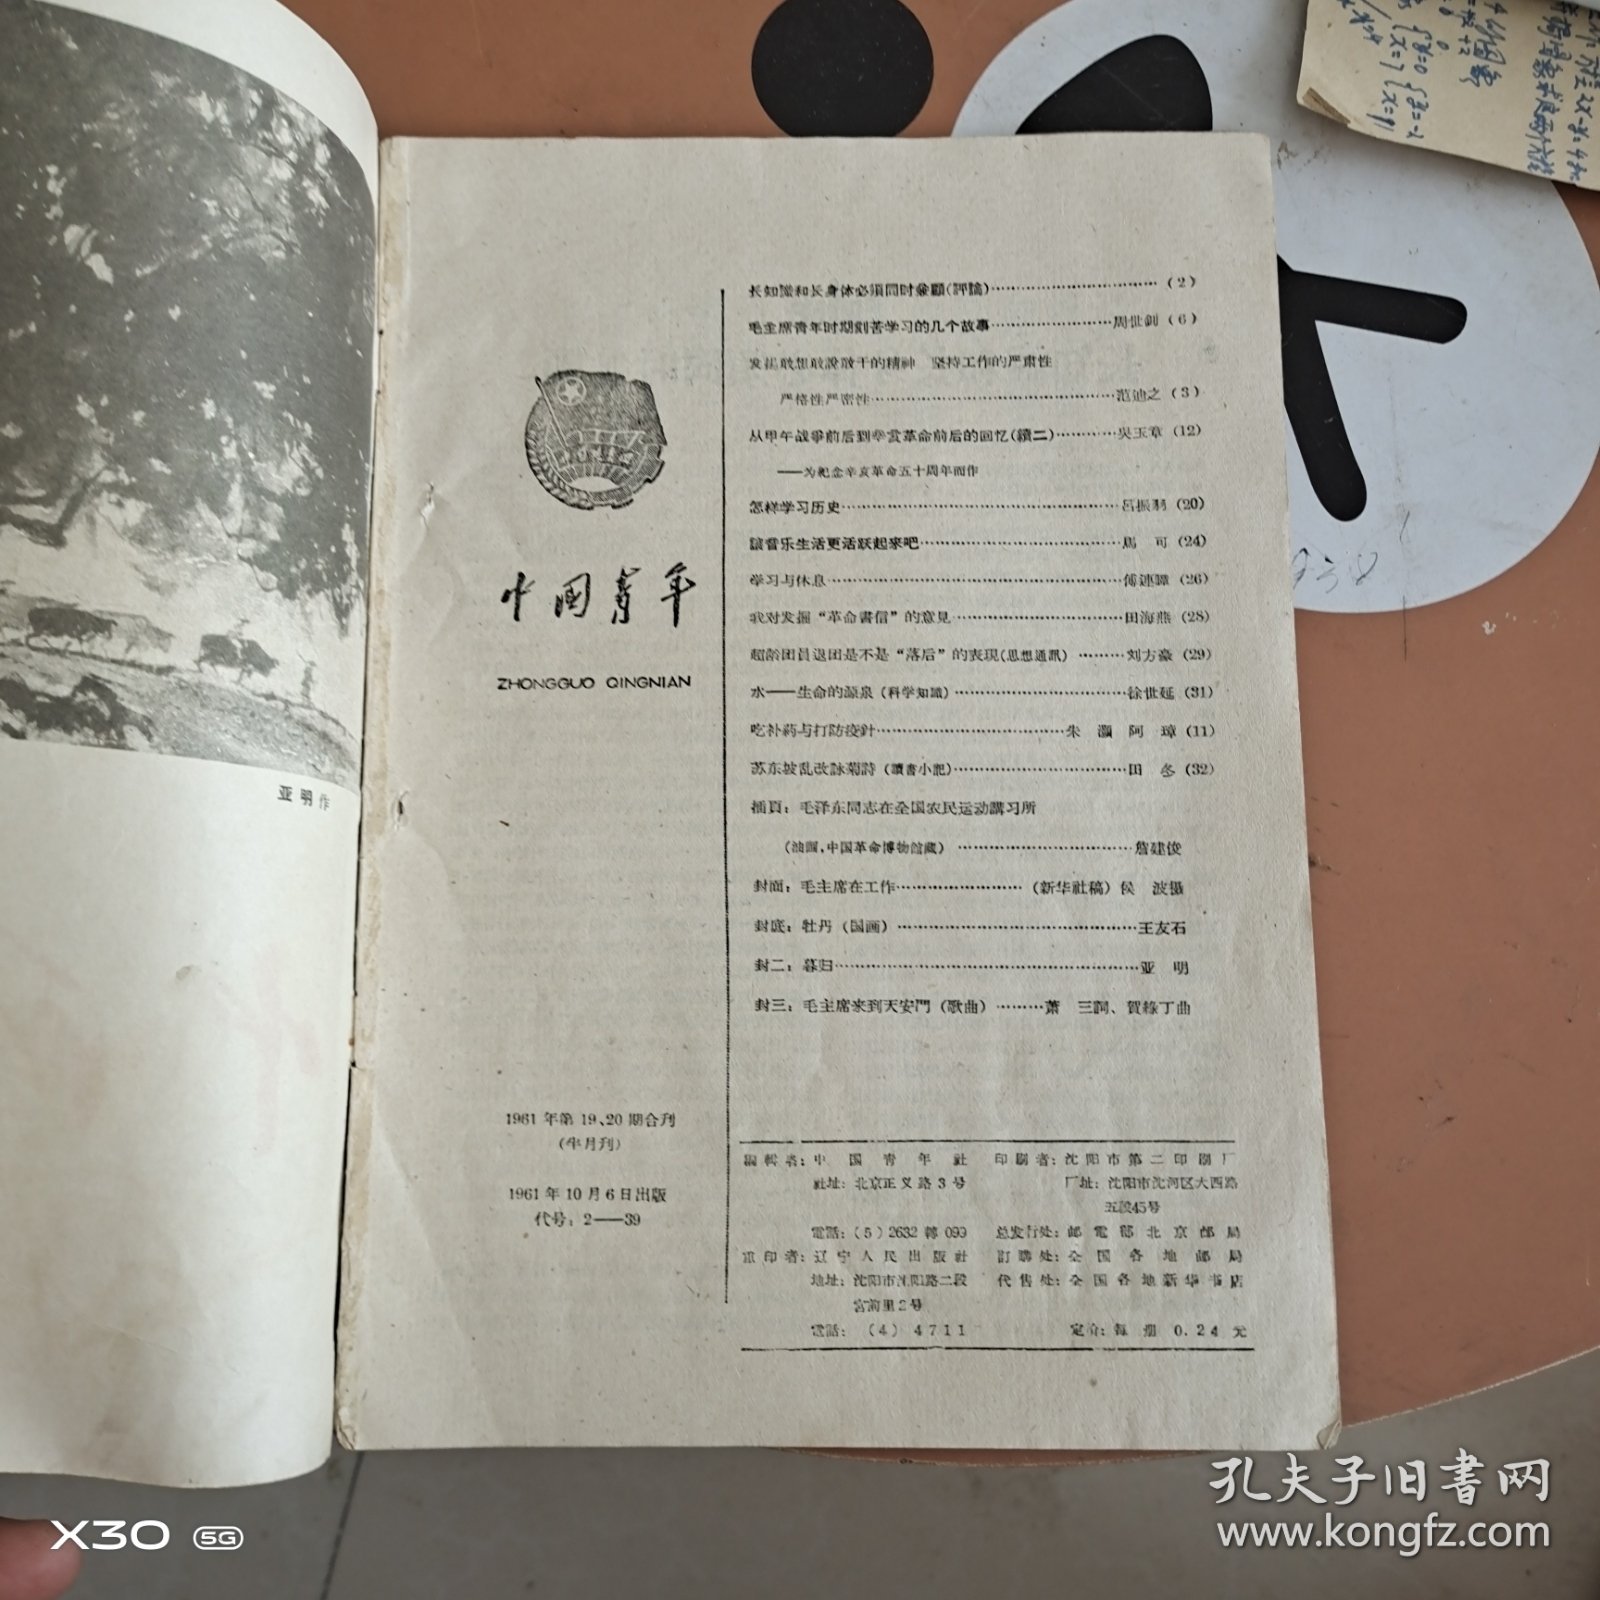 亚明作
中国青年
ZHONGGUO QINGNIAN
1961年第19、20期合刊
(半月刊)
1961年10月6日出版
代号：2——39
长知識和长身体必須同时兼顧(評論)…………(2)
毛主席青年时期刻苦学习的几个故事…………周世釗(6)
发揚敢想敢說敢干的精神 坚持工作的严肃性
严格性严密性…………范迪之(3)
从甲午战爭前后到辛亥革命前后的回忆(續二)…………吳玉章(12)
——为紀念辛亥革命五十周年而作
怎样学习历史…………呂振羽(20)
讓音乐生活更活跃起来吧…………馬 可(24)
学习与休息…………傅連暲(26)
我对发掘“革命書信”的意見…………田海燕(28)
超龄团員退团是不是“落后”的表現(思想通訊)………刘方豪(29)
水——生命的源泉(科学知識)…………徐世延(31)
吃补药与打防疫針…………朱 灏 阿 璋(11)
苏东坡乱改詠菊詩(讀書小記)…………田 冬(32)
插頁：毛泽东同志在全国农民运动講习所
(油画，中国革命博物館藏)…………詹建俊
封面：毛主席在工作…………(新华社稿)侯 波摄
封底：牡丹(国画)…………王友石
封二：暮归…………亚 明
封三：毛主席来到天安門(歌曲)………萧 三詞、賀綠丁曲
編輯者：中国青年社
社址：北京正义路3号
電話：(5)2632轉099
重印者：辽宁人民出版社
地址：沈阳市沈阳路二段
宮前里2号
電話：(4)4711
印刷者：沈阳市第二印刷厂
厂址：沈阳市沈河区大西路
五段45号
总发行处：邮電部北京邮局
訂購处：全国各地邮局
代售处：全国各地新华书店
定价：每册0.24元
孔夫子旧書网
www.kongfz.com
X30 5G